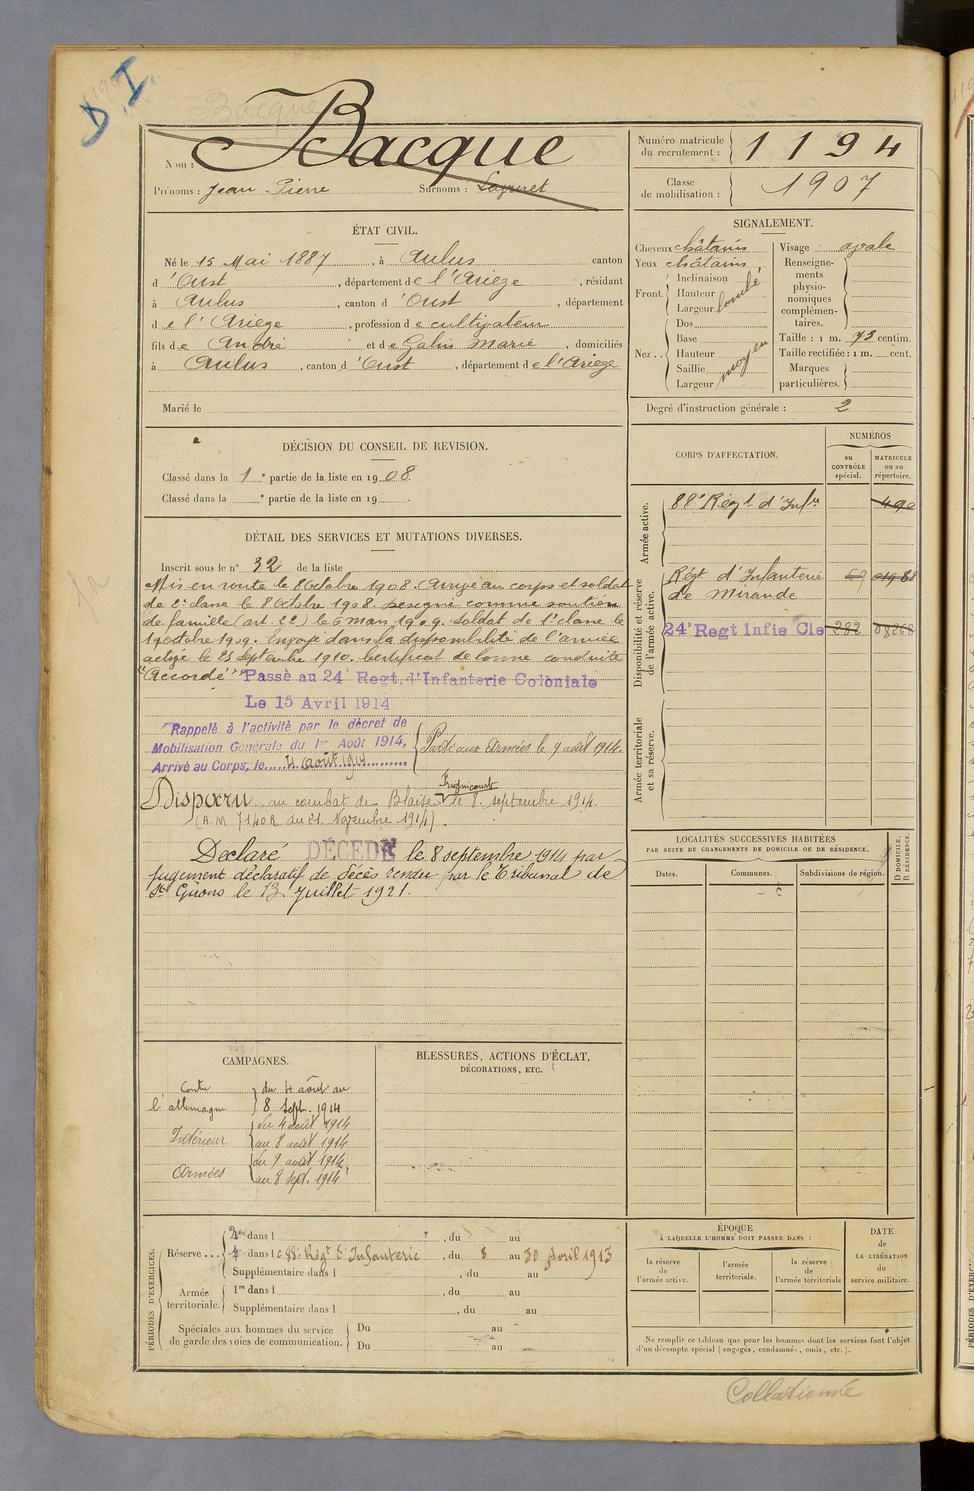 D.I
Bacque
Nom :
Prénoms : Jean-Pierre Surnoms :
Numéro matricule du recrutement : 1194
Classe de mobilisation : 1907
ÉTAT CIVIL.
Né le 15 Mai 1887, à Aulus canton
d'Oust, département de l'Ariège, résidant
à Aulus, canton d'Oust, département
de l'Ariège, profession de cultivateur
fils de André et de Galin Marie, domiciliés
à Aulus, canton d'Oust, département de l'Ariège
Marié le
SIGNALEMENT.
Cheveux châtains
Yeux châtains,
Front. Inclinaison
Hauteur
Largeur
bombé
Nez.. Dos
Base
Hauteur
Saillie
Largeur
moyen
Visage ovale
Renseignements physionomiques complémentaires.
Taille : 1 m. 73 centim.
Taille rectifiée : 1 m. cent.
Marques particulières.
Degré d'instruction générale : 2
DÉCISION DU CONSEIL DE REVISION.
Classé dans la 1e partie de la liste en 1908.
Classé dans la e partie de la liste en 19 .
DÉTAIL DES SERVICES ET MUTATIONS DIVERSES.
Inscrit sous le n° 32 de la liste
Mis en route le 8 Octobre 1908. Arrivé au corps et soldat
de 2e classe le 8 Octobre 1908. Désigné comme soutien
de famille (art. 22) le 6 mars 1909. Soldat de 1e classe le
19 octobre 1909. Envoyé dans la disponibilité de l'armée
active le 25 Septembre 1910. Certificat de bonne conduite
"Accordé" Passé au 24e Regt. d'Infanterie Coloniale
Le 15 Avril 1914
Rappelé à l'activité par le décret de
Mobilisation Générale du 1er Août 1914,
Arrivé au Corps, le 4 août 1914
Parti aux Armées le 9 août 1914.
Disparu au combat de Blaise de 8 septembre 1914.
Frignicourt
(A.M. 7140R du 21 Novembre 1914).
Déclaré DÉCÉDÉ le 8 septembre 1914 par
jugement déclaratif de décès rendu par le Tribunal de
St Girons le 13 juillet 1921.
CORPS D'AFFECTATION.
NUMÉROS
au CONTRÔLE spécial.
MATRICULE ou au répertoire.
Armée active.
88e Régt d'Infie 490
Disponibilité et réserve de l'armée active.
Régt d'Infanterie
de Mirande
24e Regt Infie Cle 282 08268
Armée territoriale et sa réserve.
LOCALITÉS SUCCESSIVES HABITÉES
PAR SUITE DE CHANGEMENTS DE DOMICILE OU DE RÉSIDENCE.
Dates. Communes. Subdivisions de région. D DOMICILE. R RÉSIDENCE.
CAMPAGNES.
Contre l'allemagne du 4 août au
8 Sept. 1914
Intérieur du 4 août 1914
au 8 août 1914
Armées du 9 août 1914
au 8 Sept. 1914
BLESSURES, ACTIONS D'ÉCLAT,
DÉCORATIONS, ETC.
PÉRIODES D'EXERCICES.
Réserve ... dans l , du au
dans le 88e Régt d'Infanterie, du 8 au 30 Avril 1913
Supplémentaire dans l , du au
Armée territoriale. 1re dans l , du au
Supplémentaire dans l , du au
Spéciales aux hommes du service
de garde des voies de communication. Du au
Du au
ÉPOQUE
À LAQUELLE L'HOMME DOIT PASSER DANS :
la réserve de l'armée active.
l'armée territoriale.
la réserve de l'armée territoriale
DATE de LA LIBÉRATION du service militaire.
Ne remplir ce tableau que pour les hommes dont les services font l'objet
d'un décompte spécial (engagés, condamnés, omis, etc.).
Collationné